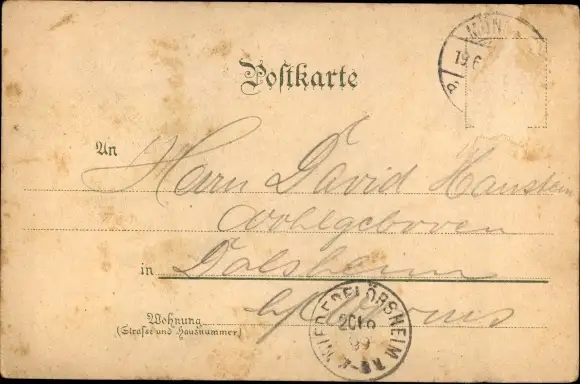 Postkarte
MÜN
19.6
An
Herrn David
Wohlgeboren
in Dalsheim
b/Worms
Wohnung
(Strasse und Hausnummer)
NIEDERFLÖRSHEIM
20 6
99